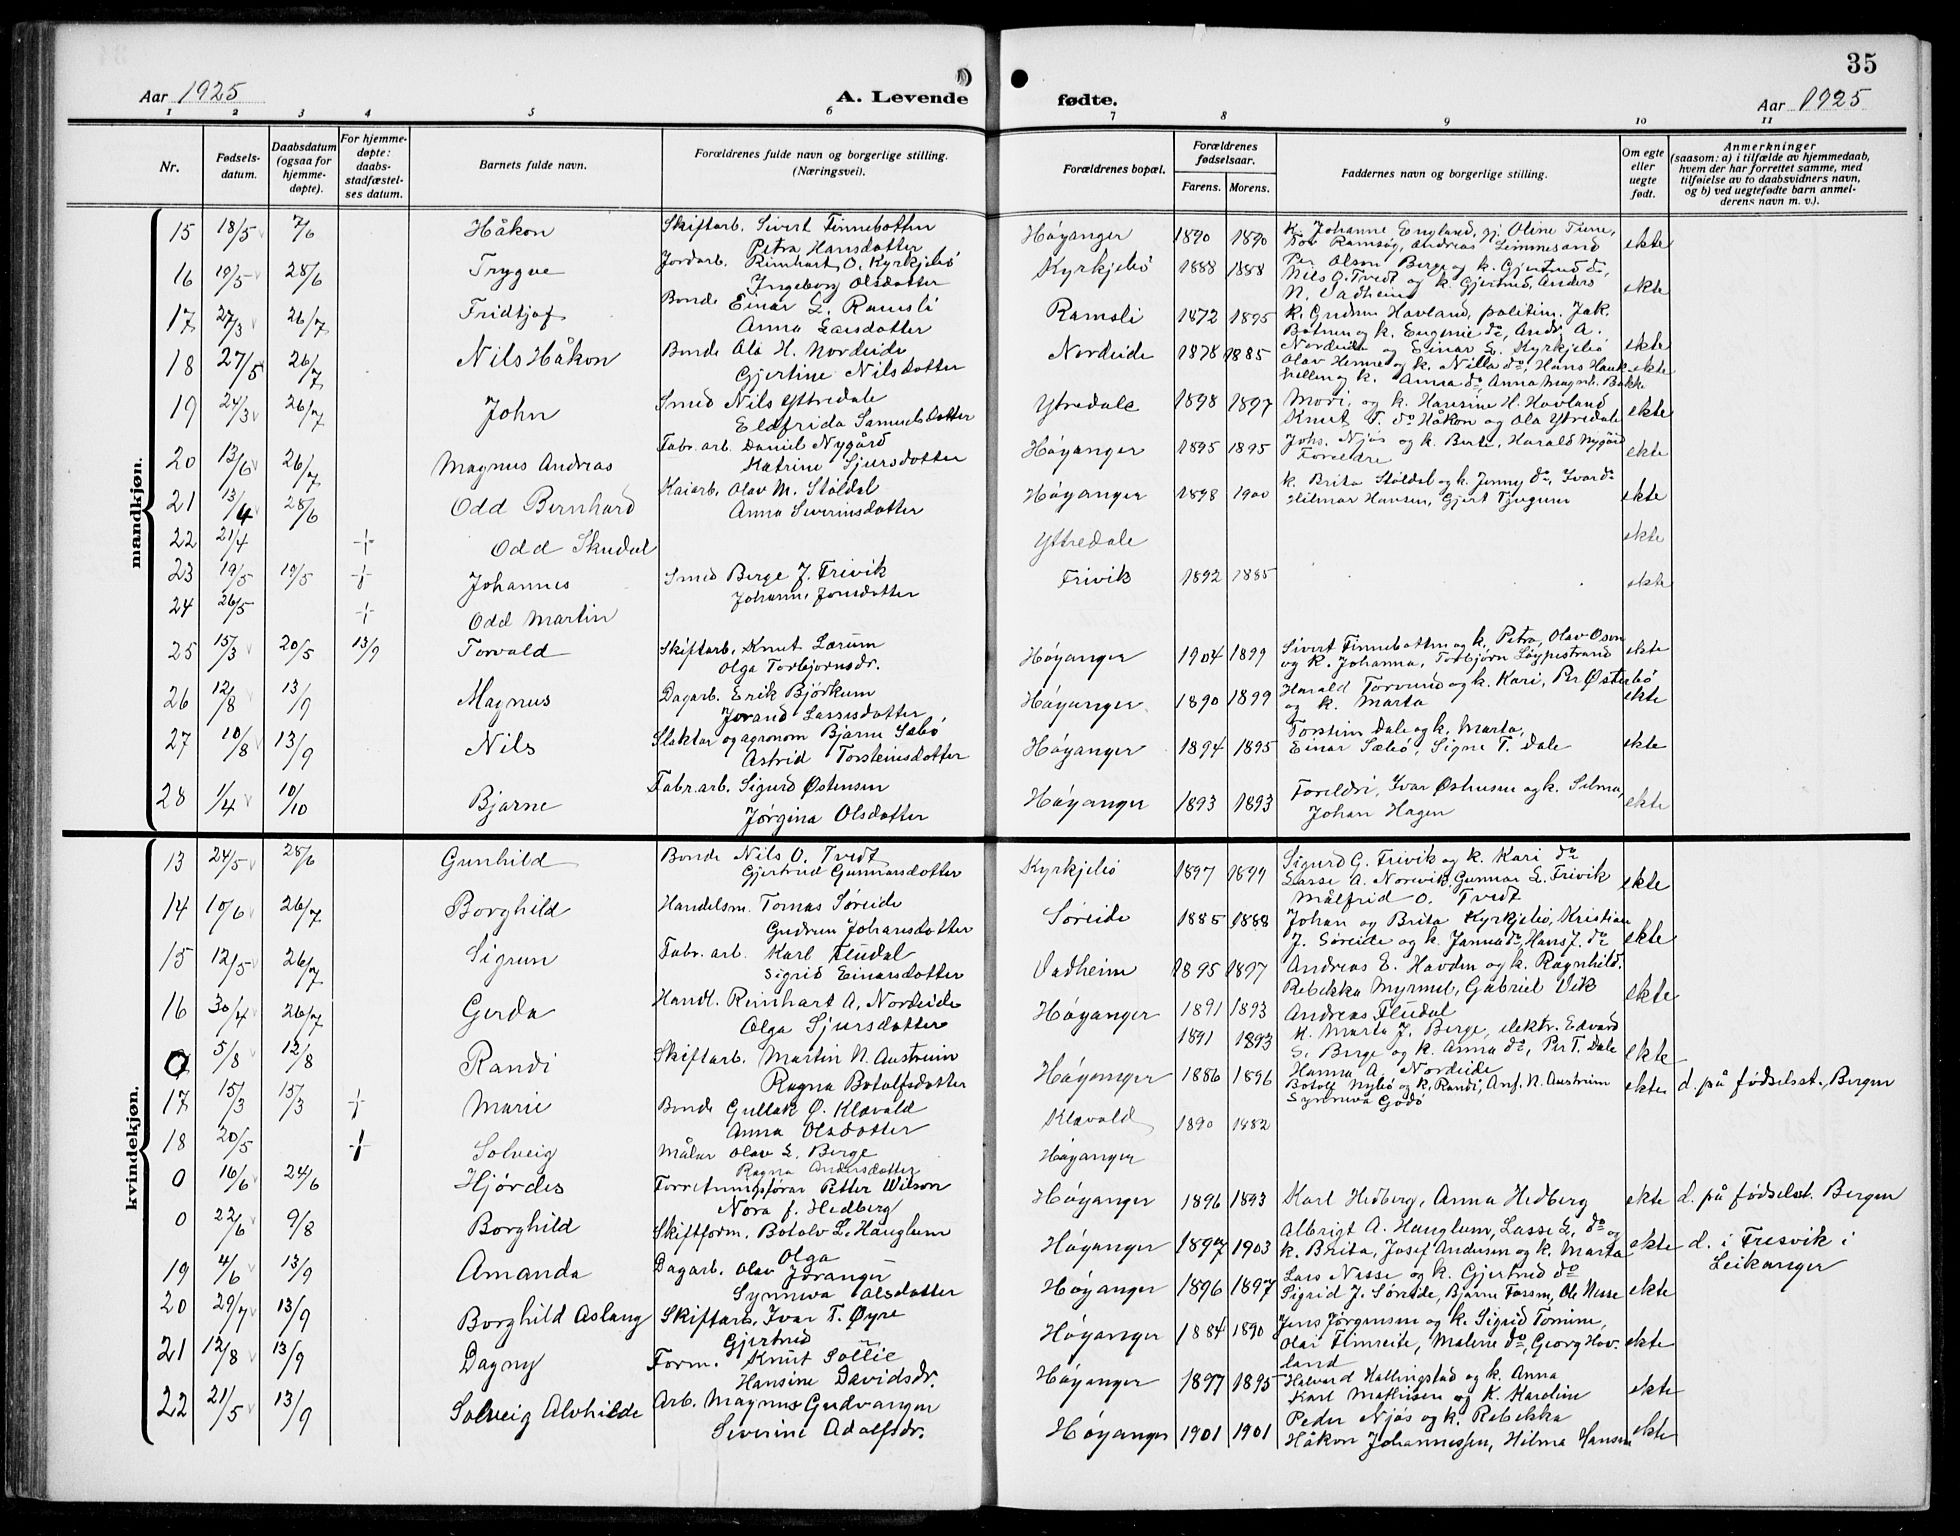 35
Aar 1925 A. Levende fødte. Aar 1925
1 2 3 4 5 6 7 8 9 10 11
Nr. Fødsels-datum. Daabsdatum (ogsaa for hjemme-døpte). For hjemme-døpte: daabs-stadfæstel-ses datum. Barnets fulde navn. Forældrenes fulde navn og borgerlige stilling. (Næringsvei). Forældrenes bopæl. Forældrenes fødselsaar. Farens. Morens. Faddernes navn og borgerlige stilling. Om egte eller uegte født. Anmerkninger (saasom: a) i tilfælde av hjemmedaab, hvem der har forrettet samme, med tilføielse av to daabsvidners navn, og b) ved uegtefødte barn anmel-derens navn m. v.).
mandkjøn.
15 18/5 7/6 Håkon Skiftarb. Sivert Finnebotten Høyanger 1890 1890 k. Johanne England, gj. Oline Tune, ekte
Petra Hansdotter Tov Ramsøy, Andreas Limmesand
16 19/5 28/6 Trygve Jordarb. Reinhart O. Kyrkjebø Kyrkjebø 1888 1888 Per Olsen Berge og k. Gjertrud do, ekte
Ingeborg Olsdotter Nils O. Tvedt og k. Gjertrud, Anders
N. Vadheim
17 27/3 26/7 Fridtjof Bonde Einar L. Ramsli Ramsli 1872 1895 k. Gudrun Havland, politim. Jak. ekte
Anna Larsdotter Botnen og k. Eugenie do, Andr. A.
Nordeide og Einar L. Kyrkjebø
18 27/5 26/7 Nils Håkon Bonde Ola H. Nordeide Nordeide 1878 1885 Olav Henne og k. Nilla do, Hans Hauk ekte
Gjertine Nilsdotter k. Anna do, Anna Magnh. Bakke
19 24/3 26/7 John Smed Nils Ytredale Ytredale 1898 1897 Mori, og k. Hansine H. Hovland ekte
Elefrida Samuelsdotter Knut T. do Håkon og Ola Ytredale
20 13/6 26/7 Magnus Andreas Fabr. arb. Daniel Nygård Høyanger 1895 1895 Johs. Njøs og k. Berte, Harald Nygård ekte
Katrine Sjursdotter Foreldre
21 13/4 28/6 Odd Bernhard Kaiarb. Olav M. Støldal Høyanger 1898 1900 k. Brita Støldal og k. Jenny do, Ivar do ekte
Anna Severinsdotter Hilmar Hansen, Gjert Tjugum
22 21/4 + Odd Skudal Ytredale ekte
23 19/5 19/5 + Johannes Smed Berge J. Trivik Trivik 1892 1885 ekte
Johanne Jonsdotter
24 26/5 + Odd Martin
25 15/3 20/5 13/9 Torvald Skiftarb. Knut Lærum Høyanger 1904 1899 Sivert Finnebotten og k. Petra, Olav Osen ekte
Olga Torbjørnsdr. og k. Johanna, Torbjørn Løypestrand
26 12/8 13/9 Magnus Dagarb. Erik Bjørkum Høyanger 1890 1899 Harald Torvund og k. Kari, Per Østerbø ekte
Jorand Lassesdotter og k. Marta
27 10/8 13/9 Nils Slaktar og agronom Bjarne Sæbø Høyanger 1894 1895 Torstein Dale og k. Marta, ekte
Astrid Torsteinsdotter Einar Sæbø, Signe T. Dale
28 1/4 10/10 Bjarne Fabr. arb. Sigurd Østensen Høyanger 1893 1893 Foreldri, Ivar Østhusen og k. Selma, ekte
Jørgina Olsdotter Johan Hagen
kvindekjøn.
13 24/5 28/6 Gunhild Bonde Nils O. Tvedt Kyrkjebø 1897 1899 Sigurd G. Trivik og k. Kari do ekte
Gjertrud Gunnarsdotter Lasse A. Norevik, Gunnar L. Trivik
Målfrid O. Tvedt
14 10/6 26/7 Borghild Handelsm. Tomas Søreide Søreide 1885 1888 Johan og Brita Kyrkjebø, Kristian ekte
Gudrun Johansdotter J. Søreide og k. Janna do, Hans J. do
15 12/5 26/7 Sigrun Fabr. arb. Karl Fludal Vadheim 1895 1897 Andreas E. Havden og k. Ragnhild.
Sigrid Einarsdotter Rebekka Myrmel, Gabriel Vik ekte
16 30/4 26/7 Gerda Handl. Reinhart A. Nordeide Høyanger 1891 1893 Andreas Fludal
Olga Sjursdotter 1891 1893 k. Marta J. Berge, elektr. Edvard
0 5/8 12/8 Randi Skiftarb. Martin N. Austreim S. Berge og k. Anna do, Per T. Dale ekte
Ragna Botolfsdotter Høyanger 1886 1896 Hanna A. Nordeide
Botolf Nybø og k. Randi, Anf. N. Austreim ekte d. på fødselsst. Bergen
17 15/3 15/3 + Marie Bonde Gullak Ø. Klævold Klævold 1890 1882 Synneva Godø
Anna Olsdotter
18 20/5 + Solveig Målar Olav L. Berge Høyanger
Ragna Andersdotter
0 16/6 24/6 Hjørdes Forretningsførar Petter Wilson Høyanger 1896 1893 Karl Hedberg, Anna Hedberg ekte d. på fødselst. Bergen
Nora f. Hedberg
0 22/6 9/8 Borghild Skiftform. Botolv L. Hauglum Høyanger 1897 1903 Albrigt A. Hauglum, Lasse L. do og ekte d. i Fresvik i
Olga k. Brita, Josef Andersen og k. Marta Leikanger
19 4/6 13/9 Amanda Dagarb. Olav Joranger Høyanger 1896 1897 Lars Nesse og k. Gjertrud do ekte
Synneva Olsdotter Sigrid J. Søreide, Bjarne Forsm, Ole Nesse
20 29/7 13/9 Borghild Aslaug Skiftarb. Ivar T. Øyre Høyanger 1884 1890 Jens Jørgensen og k. Sigrid Tonine, ekte
Gjertrud Olai Flimreite, Malene do, Georg Hov-
land
21 12/8 13/9 Dagny Form. Knut Sollie Høyanger 1897 1895 Halvard Hallingstad og k. Anna ekte
Hansine Davidsdr. Karl Mathisen og k. Karoline
22 21/5 13/9 Solveig Alvhilde Arb. Magnus Gudvangen Høyanger 1901 1901 Peder Njøs og k. Rebekka ekte
Severine Adolfsdr. Håkon Johannessen, Hilma Hansen